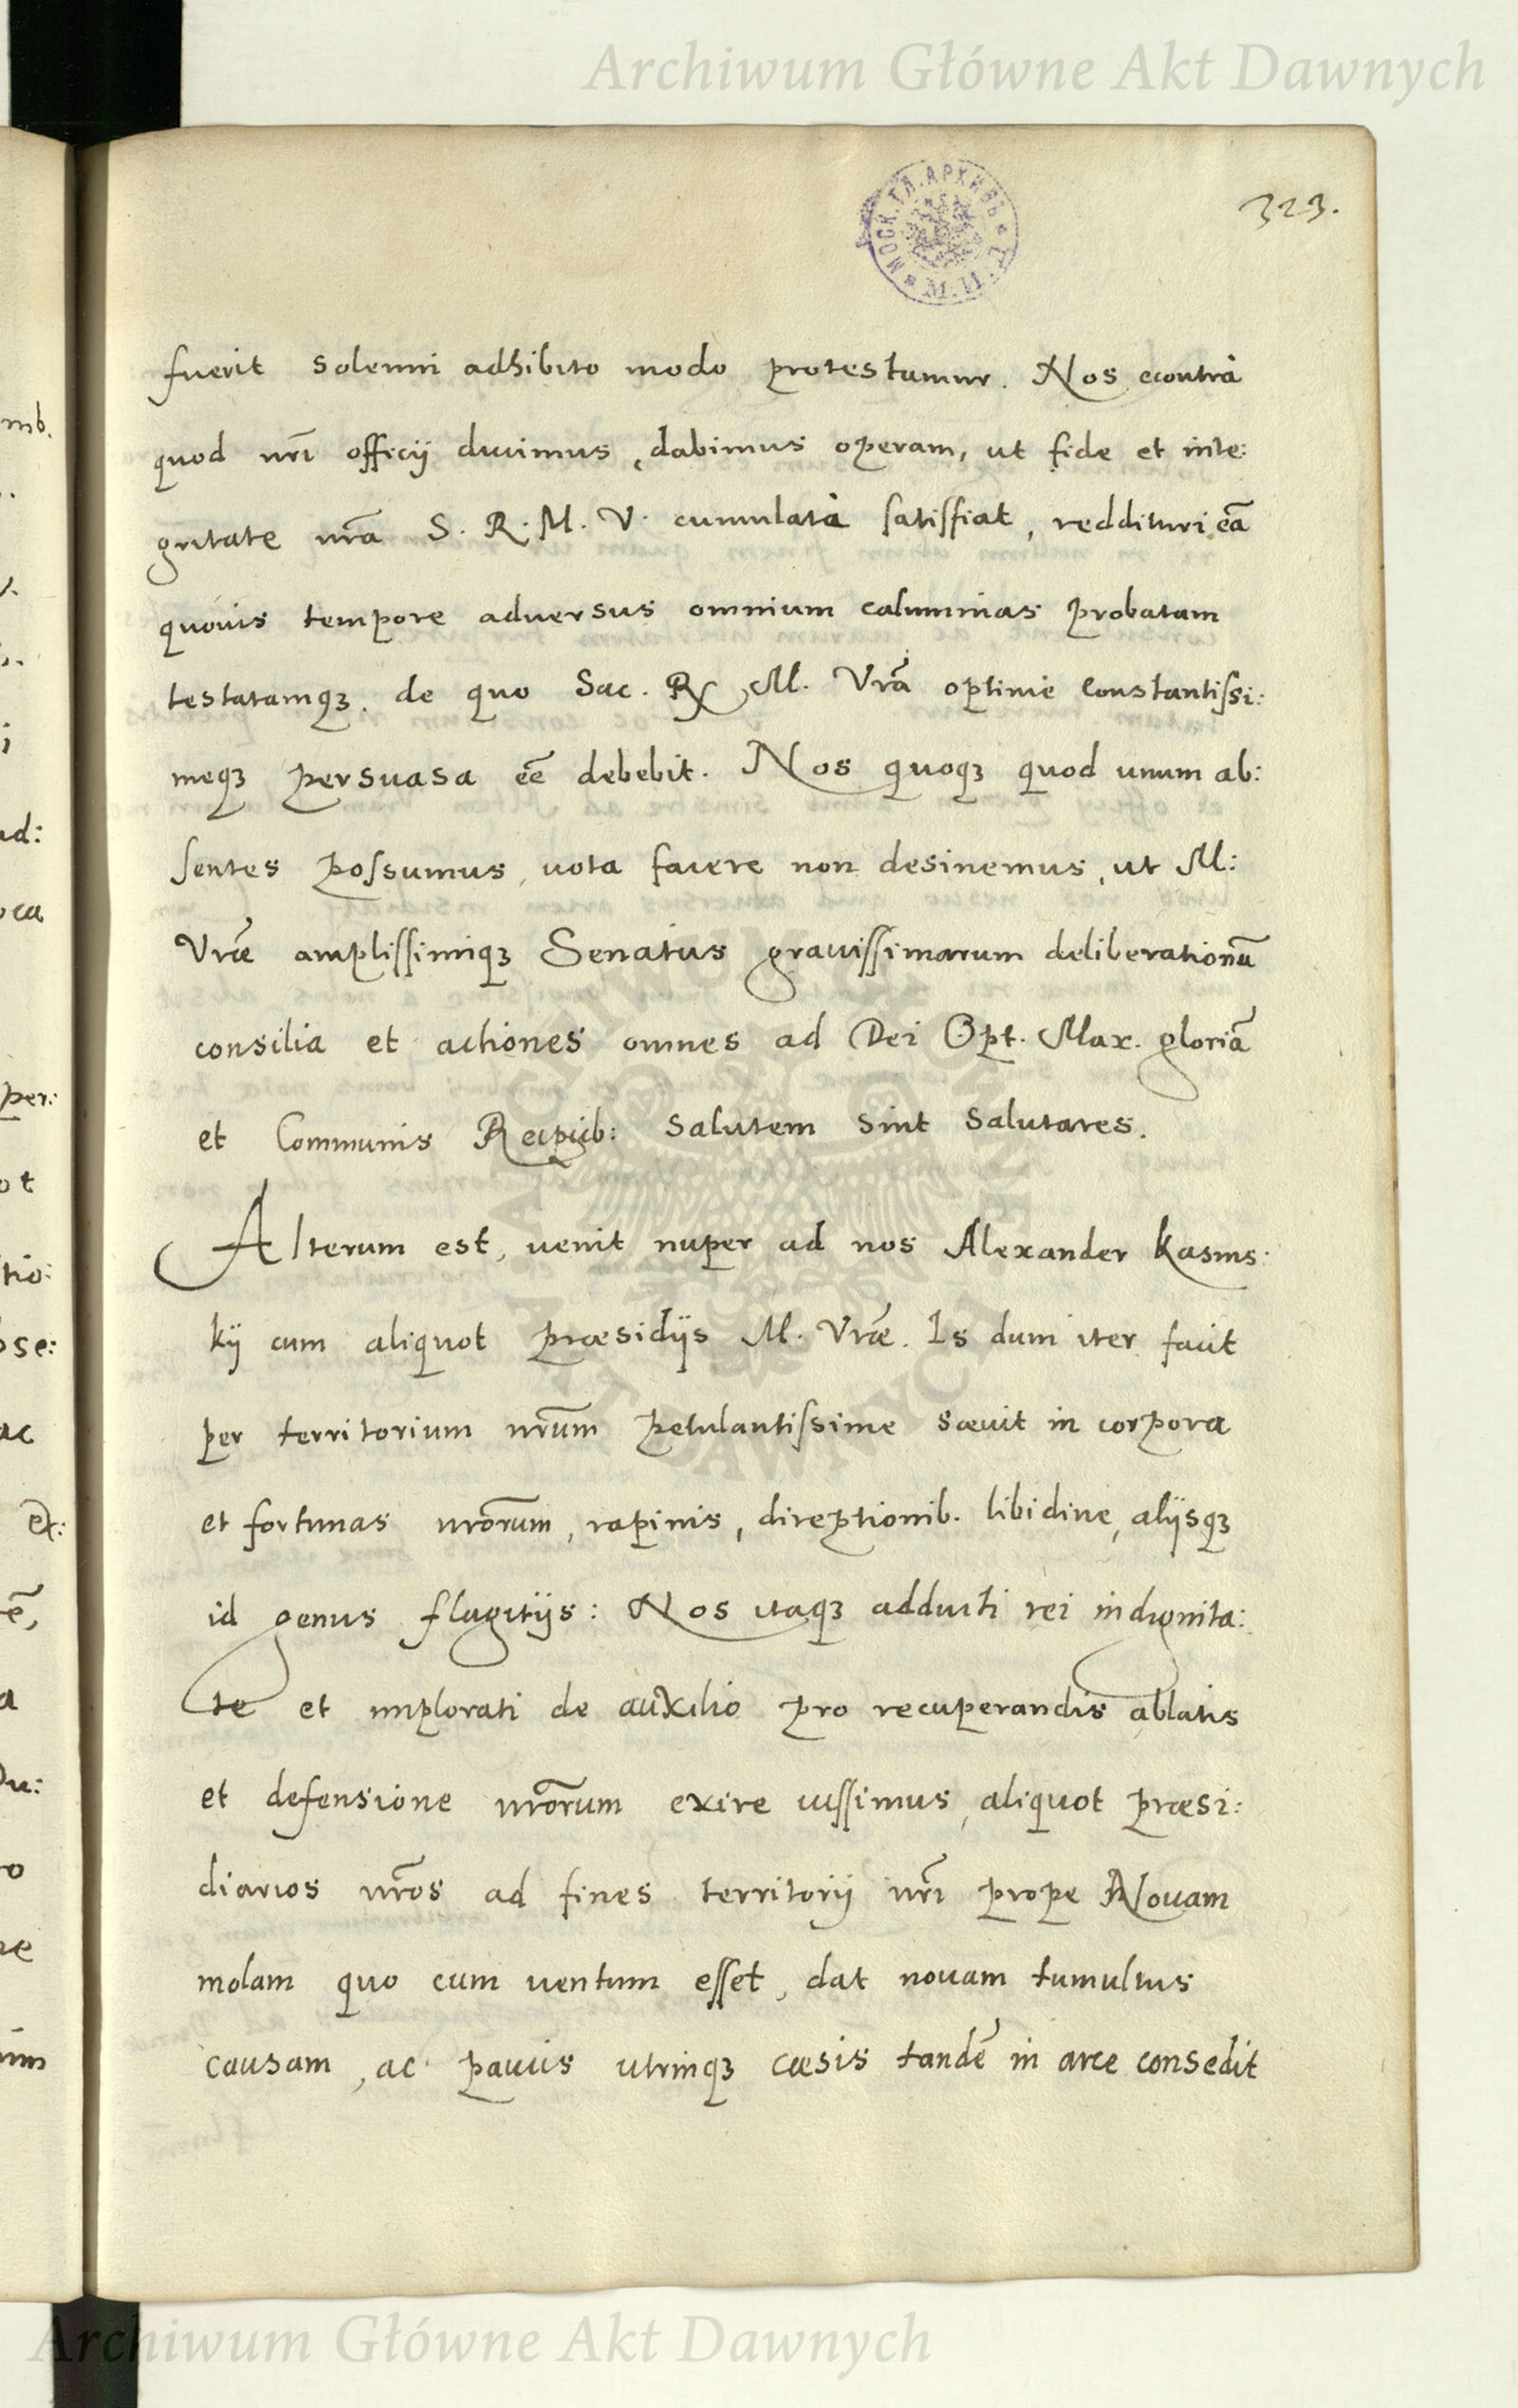 Archiwum Główne Akt Dawnych
МОСК. ГЛ. АРХИВЪ
323.
fuerit solenni adhibito modo protestamur. Nos econtrà
quod nrĩ officij ducimus, dabimus operam, ut fide et inte:
gritate nrã S. R. M. V. cumulatà satisfiat, reddituri eã
quouis tempore aduersus omnium calumnias probatam
testatamqꝫ. de quo Sac. R. M. Vrã optime constantissi:
meqꝫ persuasa eẽ debebit. Nos quoqꝫ quod unum ab:
sentes possumus, uota facere non desinemus, ut M:
Vræ̃ amplissimiqꝫ Senatus grauissimarum deliberationũ
consilia et actiones omnes ad Dei Opt. Max. gloriã
et Communis Reipub: salutem sint salutares.
Alterum est, uenit nuper ad nos Alexander Kasins:
kij cum aliquot præsidijs M. Vræ̃. Is dum iter facit
per territorium nrũm petulantissime sæuit in corpora
et fortunas nrõrum, rapinis, direptionib. libidine, alijsqꝫ
id genus flagitijs: Nos itaqꝫ adducti rei indignita:
te et implorati de auxilio pro recuperandis ablatis
et defensione nrõrum exire iussimus, aliquot præsi:
diarios nrõs ad fines territorij nrĩ prope Nouam
molam quo cum uentum esset, dat nouam tumultus
causam, ac paucis utrinqꝫ cæsis tandẽ in arce consedit
Archiwum Główne Akt Dawnych